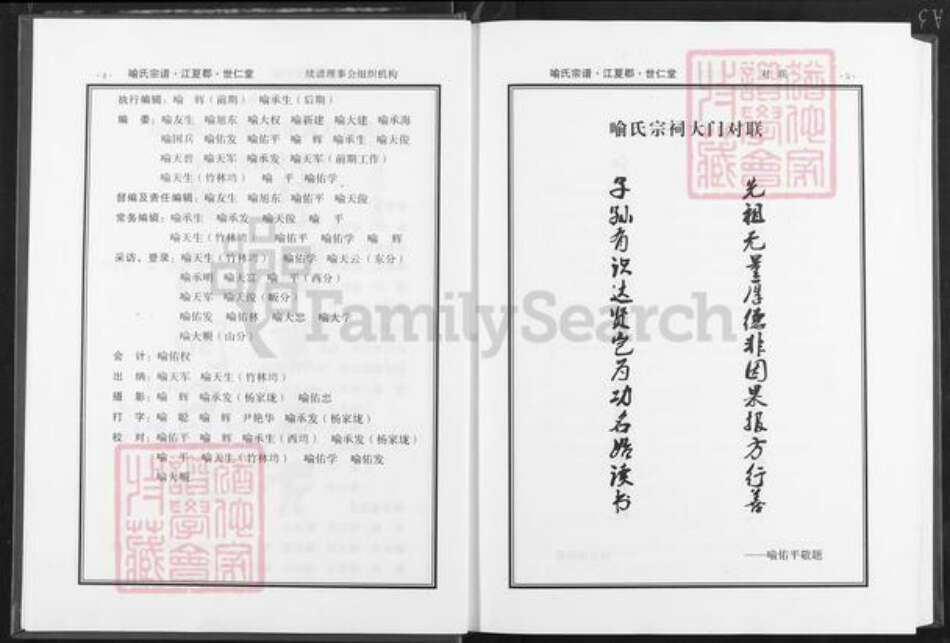 喻氏宗谱·江夏郡·世仁堂 续谱理事会组织机构
执行编辑：喻 辉（前期） 喻承生（后期）
编 委：喻友生 喻旭东 喻大权 喻新建 喻大建 喻承海
喻国兵 喻佑发 喻佑平 喻 辉 喻承生 喻天俊
喻天碧 喻天军 喻承发 喻天军（前期工作）
喻天生（竹林塆） 喻 平 喻佑学
督编及责任编辑：喻友生 喻旭东 喻佑平 喻天俊
常务编辑：喻承生 喻承发 喻天俊 喻 平
喻天生（竹林塆） 喻佑平 喻佑学 喻 辉
采访、登录：喻天生（竹林塆） 喻佑学 喻天云（东分）
喻承明 喻天富 喻 平（西分）
喻天军 喻天俊（畈分）
喻佑发 喻佑林 喻大忠 喻大学
喻大顺（山分）
会 计：喻佑权
出 纳：喻天军 喻天生（竹林塆）
摄 影：喻 辉 喻承发（杨家垅） 喻佑忠
打 字：喻 聪 喻 辉 尹艳华 喻承发（杨家垅）
校 对：喻佑平 喻 辉 喻承生（西塆） 喻承发（杨家垅）
喻 平 喻天生（竹林塆） 喻佑学 喻佑发
喻大顺
喻氏宗谱·江夏郡·世仁堂 对联
喻氏宗祠大门对联
先祖无量厚德非因果报方行善
子孙有识达贤岂为功名始读书
——喻佑平敬题
FamilySearch